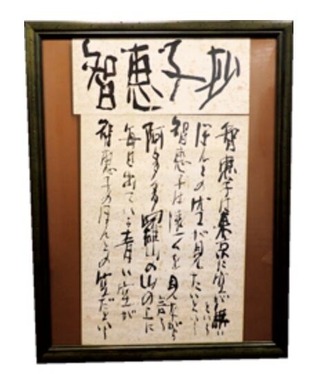 智恵子抄
智恵子は東京に空が無いという
ほんとの空が見たいという
智恵子は遠くを見ながら言う
阿多多羅山の山の上に
毎日出ている青い空が
智恵子のほんとの空だという